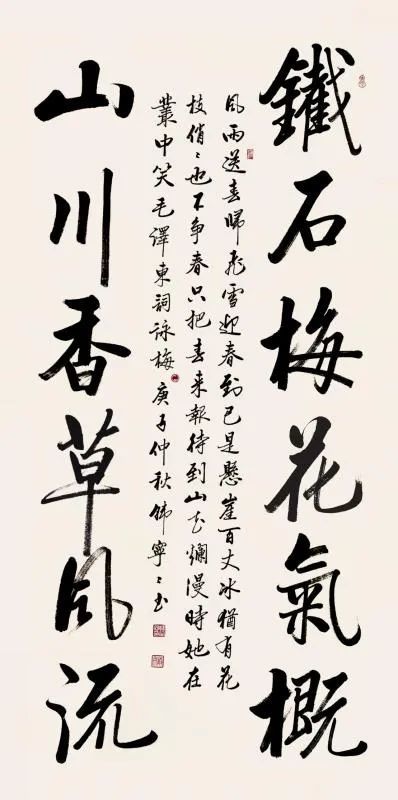 鐵石梅花氣概
风雨送春歸飛雪迎春到已是懸崖百丈冰猶有花
枝俏〻也不争春只把春来報待到山花爛漫時她在
叢中笑毛澤東詞詠梅庚子仲秋韩寧〻书
山川香草风流